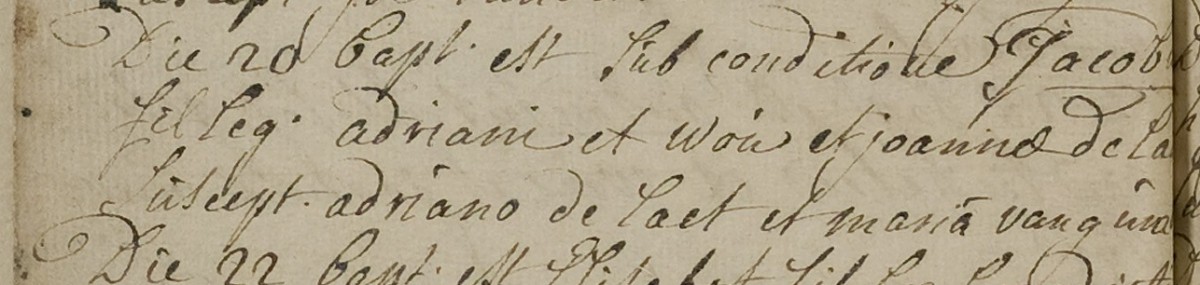 Die 20 bapt. est sub conditione Jacob
fil leg. adriani et woü et joannæ de la
suscept. adriano de laet et mariā van
Die 22 bapt. est